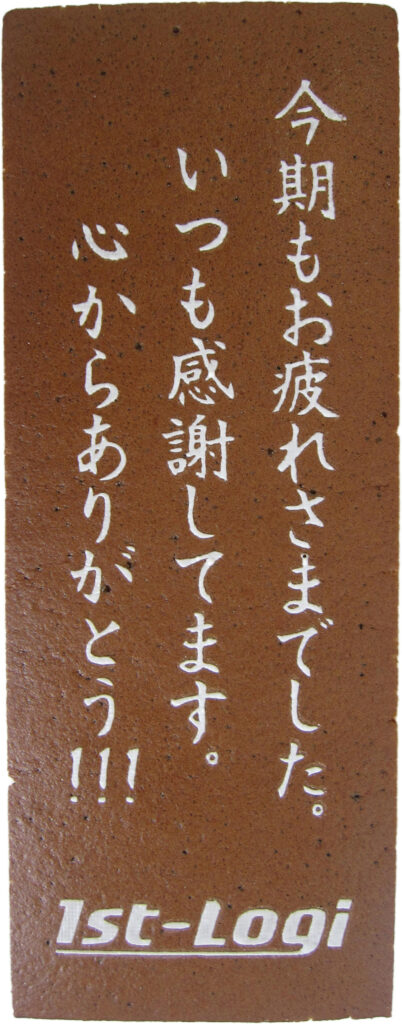 今期もお疲れさまでした。
いつも感謝してます。
心からありがとう!!!
1st-Logi